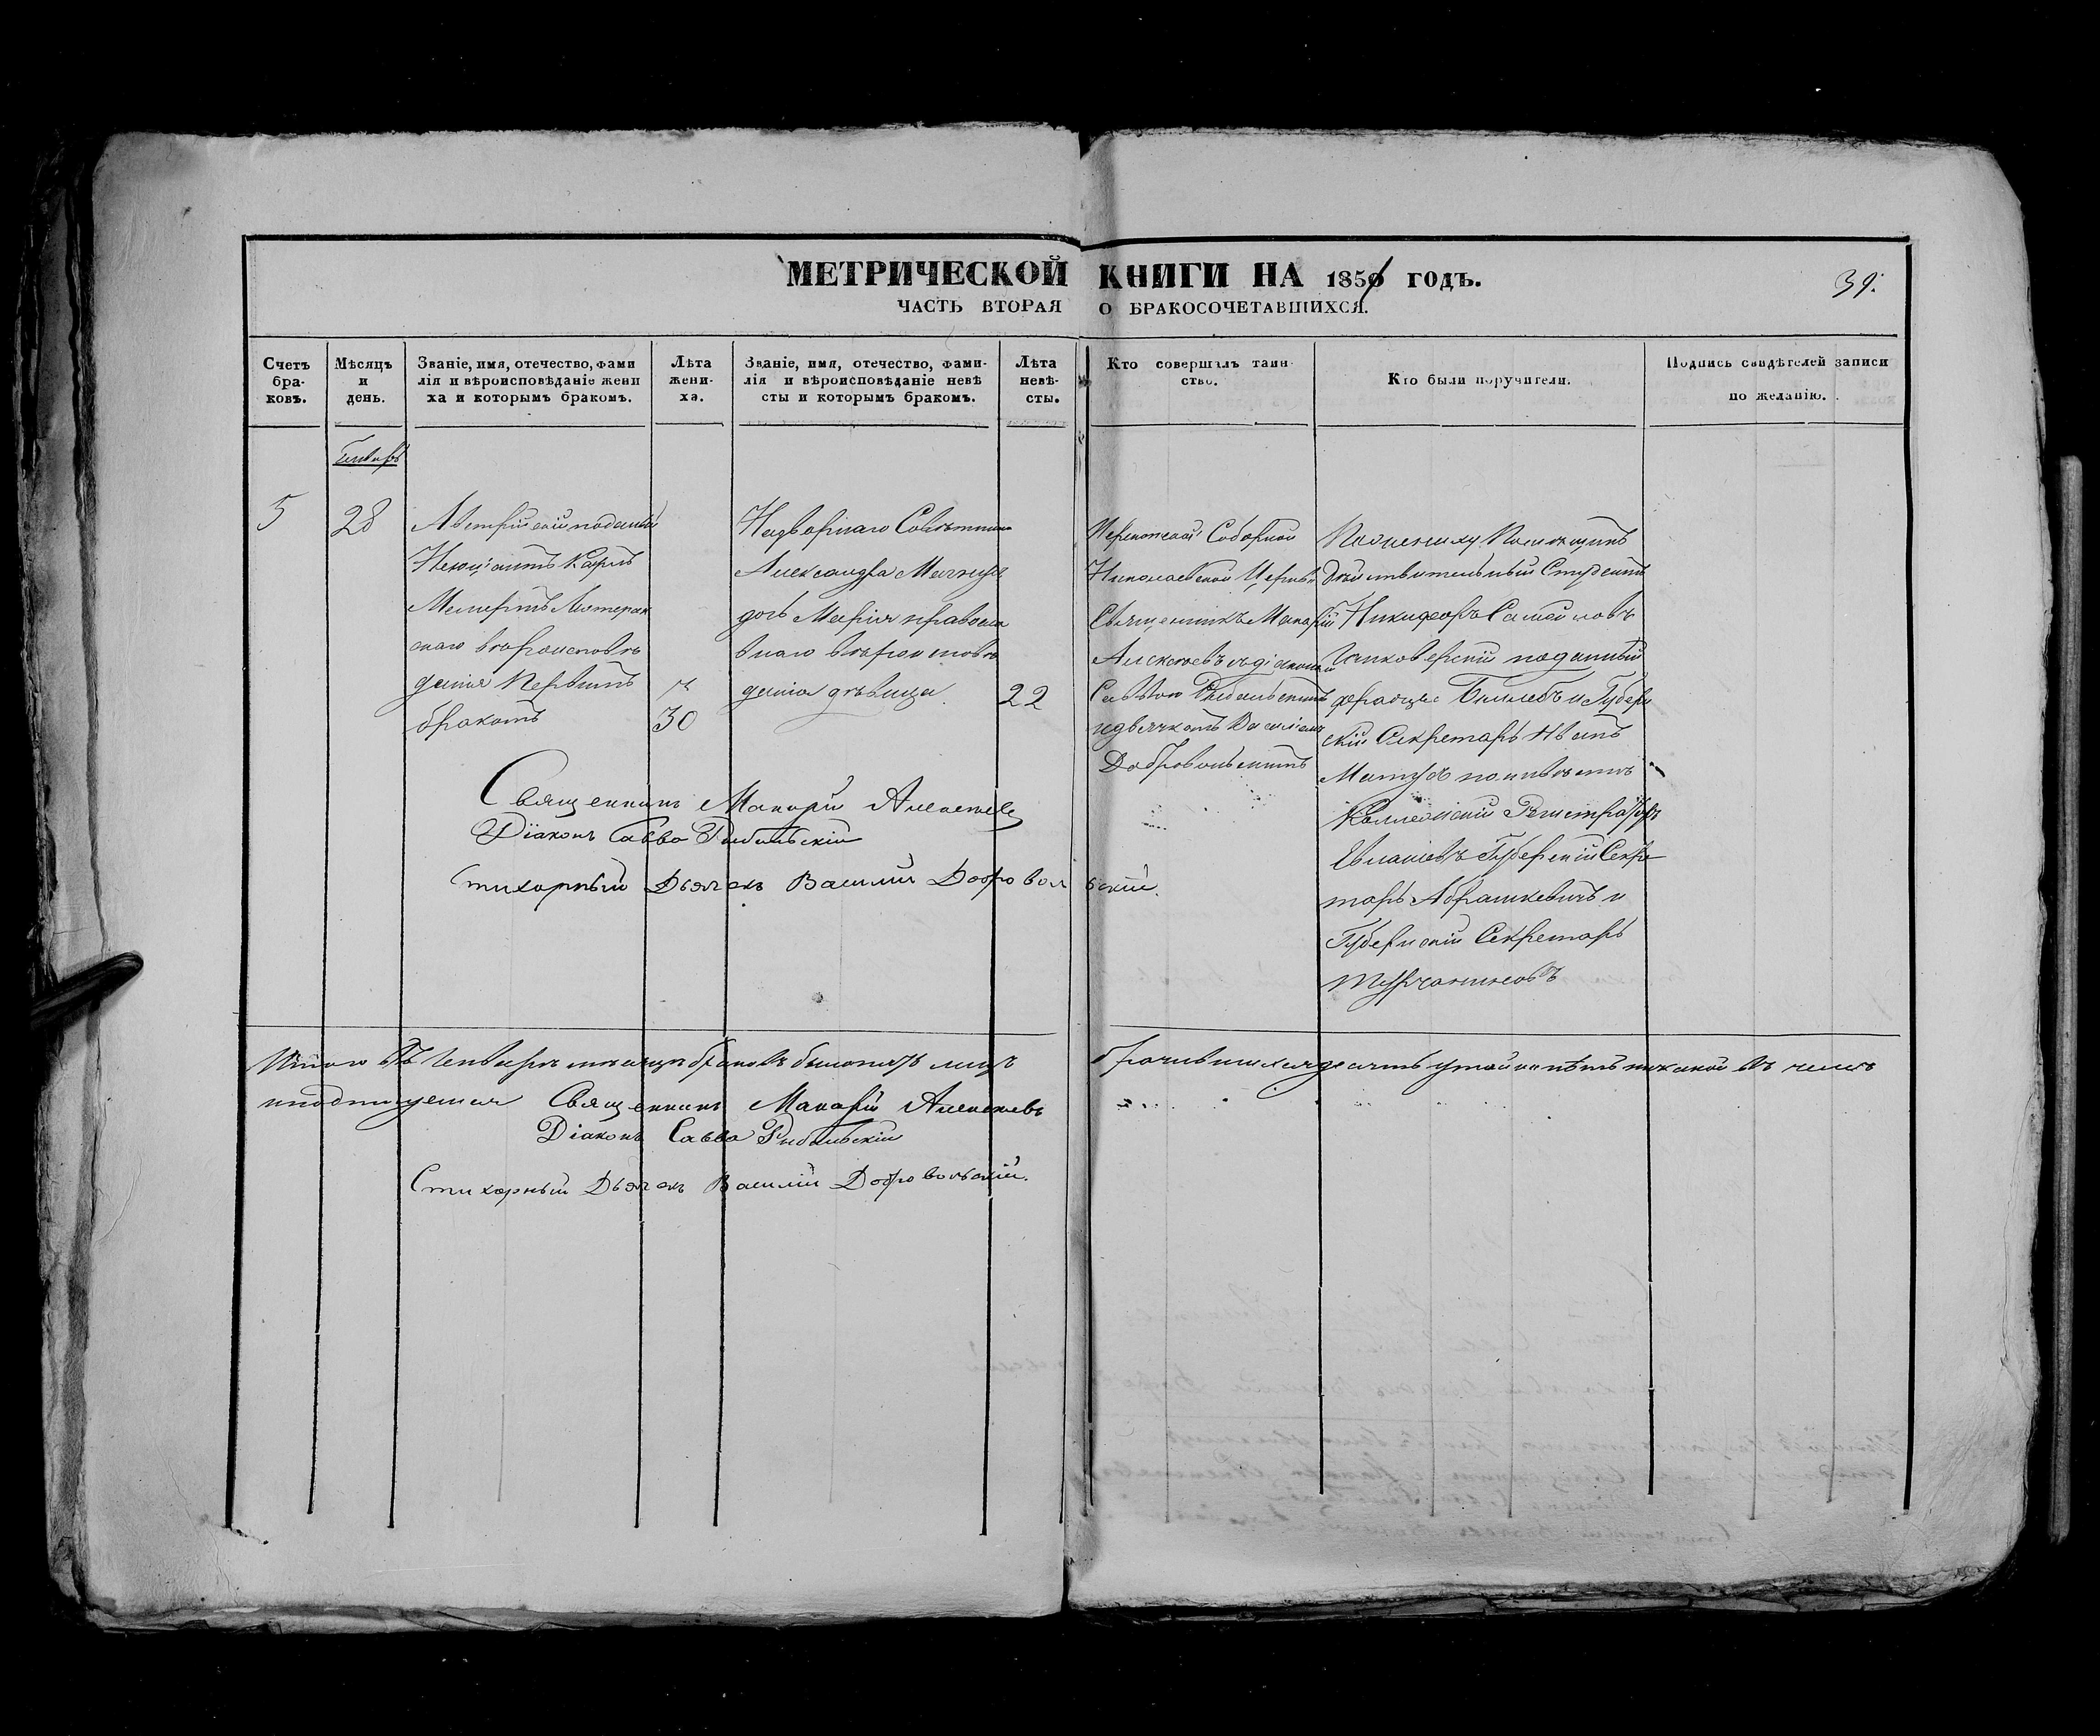 МЕТРИЧЕСКОЙ КНИГИ НА 1856 ГОДЪ.
39.
ЧАСТЬ ВТОРАЯ О БРАКОСОЧЕТАВШИХСЯ.
Счетъ бра- ковъ.
Мѣсяцъ и день.
Званіе, имя, отечество, фами
лія и вѣроисповѣданіе жени
ха и которымъ бракомъ.
Лѣта жени- ха.
Званіе, имя, отечество, фами-
лія и вѣроисповѣданіе невѣ
сты и которымъ бракомъ.
Лѣта невѣ- сты.
Кто совершалъ таин-
ство.
Кто были поручители.
Подпись свидѣтелей записи
по желанію.
Генварь
5
28
Австрійскій поданый
Негоціантъ Карлъ
Лютеран
скаго вѣроисповѣ
данія Первымъ
бракомъ
30
Надворнаго Совѣтника
Александра
дочь Марія православ
внаго вѣроисповѣ
данія дѣвица
22
Соборной
Николаевской Церкви
Священникъ Макарій
Алексѣевъ съ діакономъ
Саввою Рыбальскимъ
и дьячкомъ Василіемъ
Добровольскимъ
По жениху Помѣщикъ
Дѣйствительный Студентъ
Никифоръ Самойловъ
поданный
и Губерн
скій Секретарь
по невѣстѣ
Коллежскій Регистраторъ
Губернскій Секре
тарь Абрашкевичъ и
Губернскій Секретарь
Турчаниновъ
Священникъ Макарій Алексѣевъ
Діаконъ Савва Рыбальскій
Стихарный Дьячекъ Василій Добровольскій.
Итого въ Генварѣ мѣсяцѣ браковъ было пять лицъ брачившихся десять утайки нѣтъ никакой въ чемъ
и подписуемся Священникъ Макарій Алексѣевъ
Діаконъ Савва Рыбальскій
Стихарный Дьячекъ Василій Добровольскій.